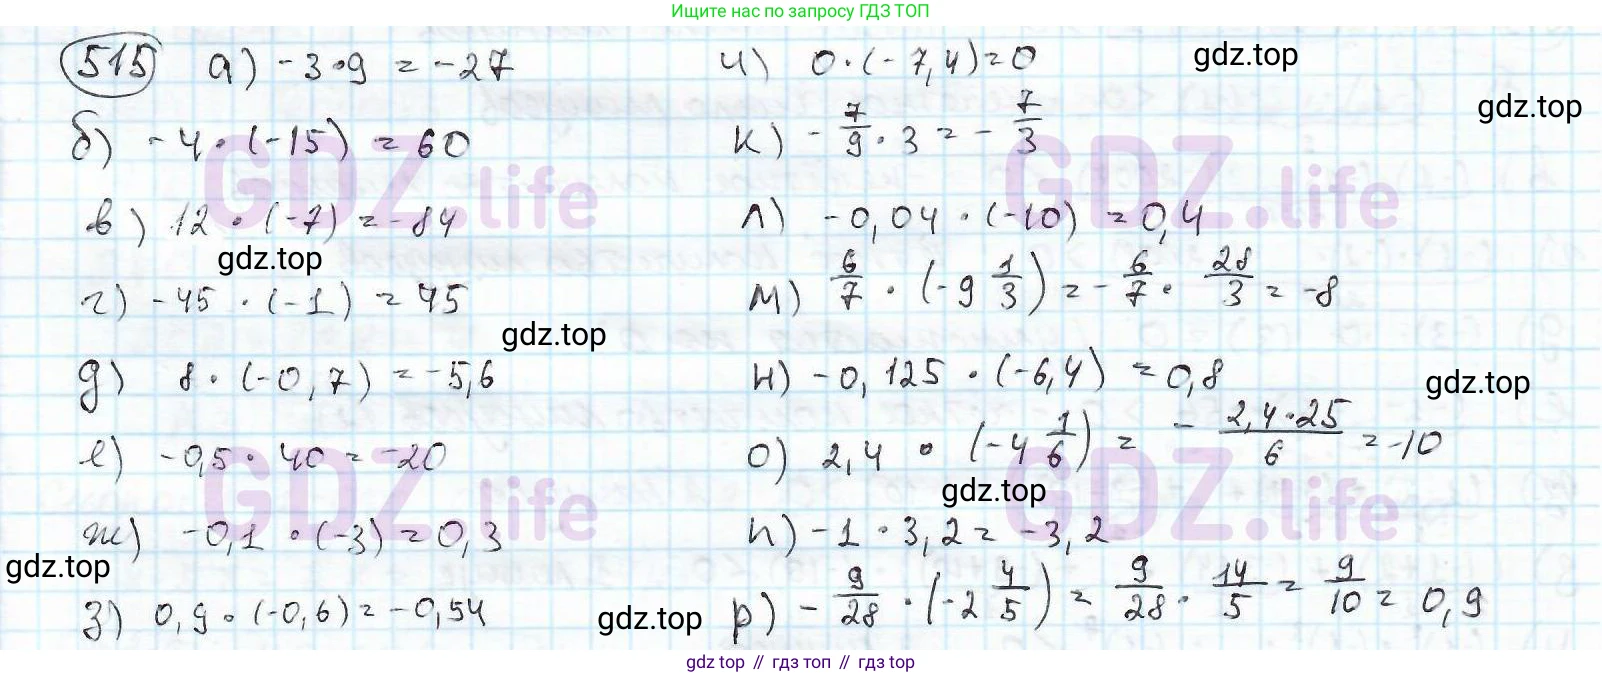 Ищите нас по запросу ГДЗ ТОП
515 а) -3·9 = -27
б) -4·(-15) = 60
в) 12·(-7) = -84
г) -45·(-1) = 45
д) 8·(-0,7) = -5,6
е) -0,5·40 = -20
ж) -0,1·(-3) = 0,3
з) 0,9·(-0,6) = -0,54
и) 0·(-7,4) = 0
к) -7/9·3 = -7/3
л) -0,04·(-10) = 0,4
м) 6/7·(-9 1/3) = -6/7·28/3 = -8
н) -0,125·(-6,4) = 0,8
о) 2,4·(-4 1/6) = -2,4·25/6 = -10
п) -1·3,2 = -3,2
р) -9/28·(-2 4/5) = 9/28·14/5 = 9/10 = 0,9
gdz.top
gdz.top
gdz.top
gdz.top
gdz.top
gdz.top
gdz.top
gdz.top
GDZ.life
GDZ.life
GDZ.life
GDZ.life
gdz top // гдз топ // гдз top